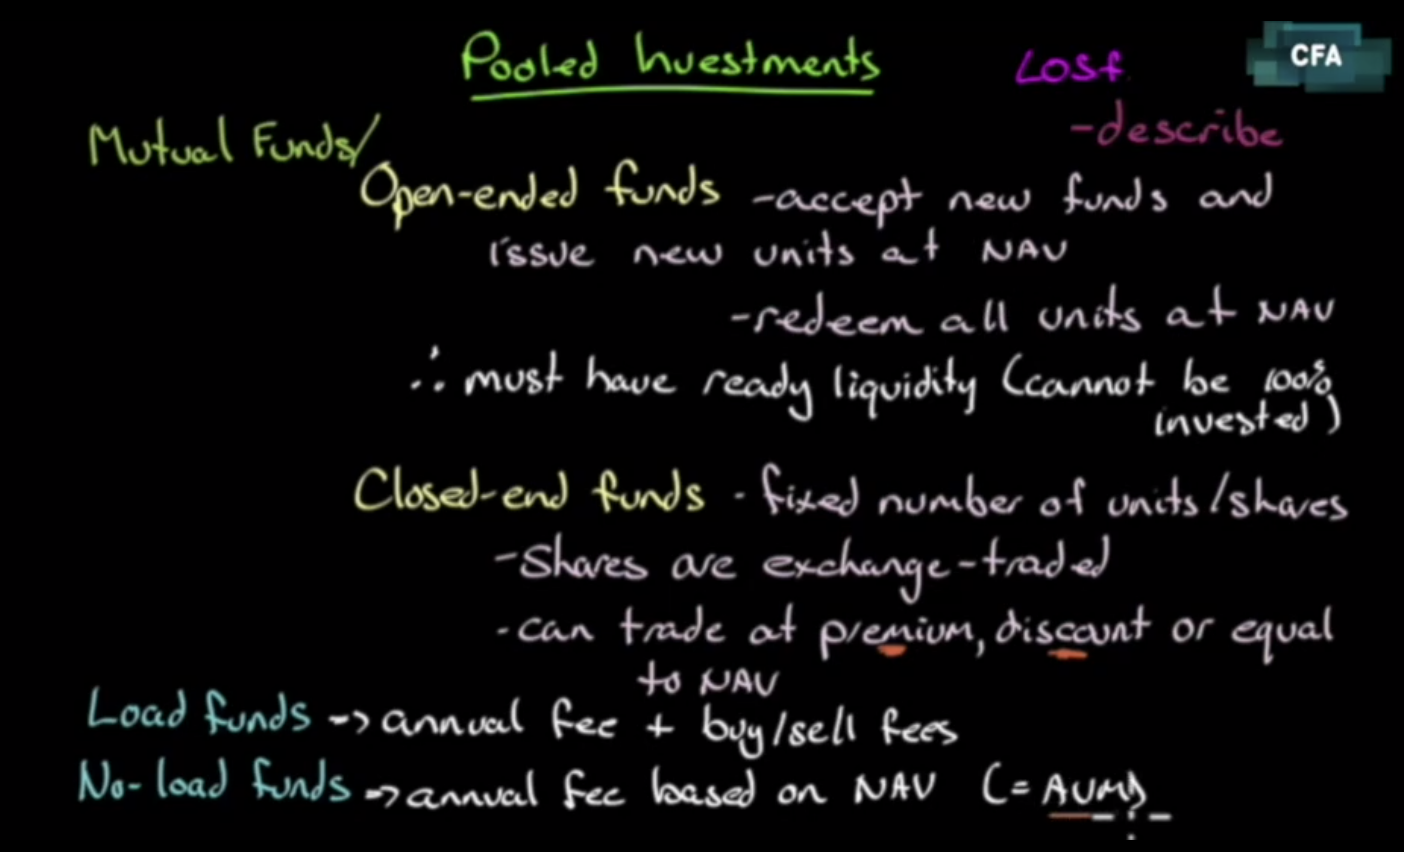 Pooled Investments
LOSf
CFA
-describe
Mutual Funds/
Open-ended funds -accept new funds and
issue new units at NAV
-redeem all units at NAV
∴ must have ready liquidity (cannot be 100%
invested)
Closed-end funds - fixed number of units/shares
-Shares are exchange-traded
-can trade at premium, discount or equal
to NAV
Load funds -> annual fee + buy/sell fees
No-load funds -> annual fee based on NAV (= AUM)